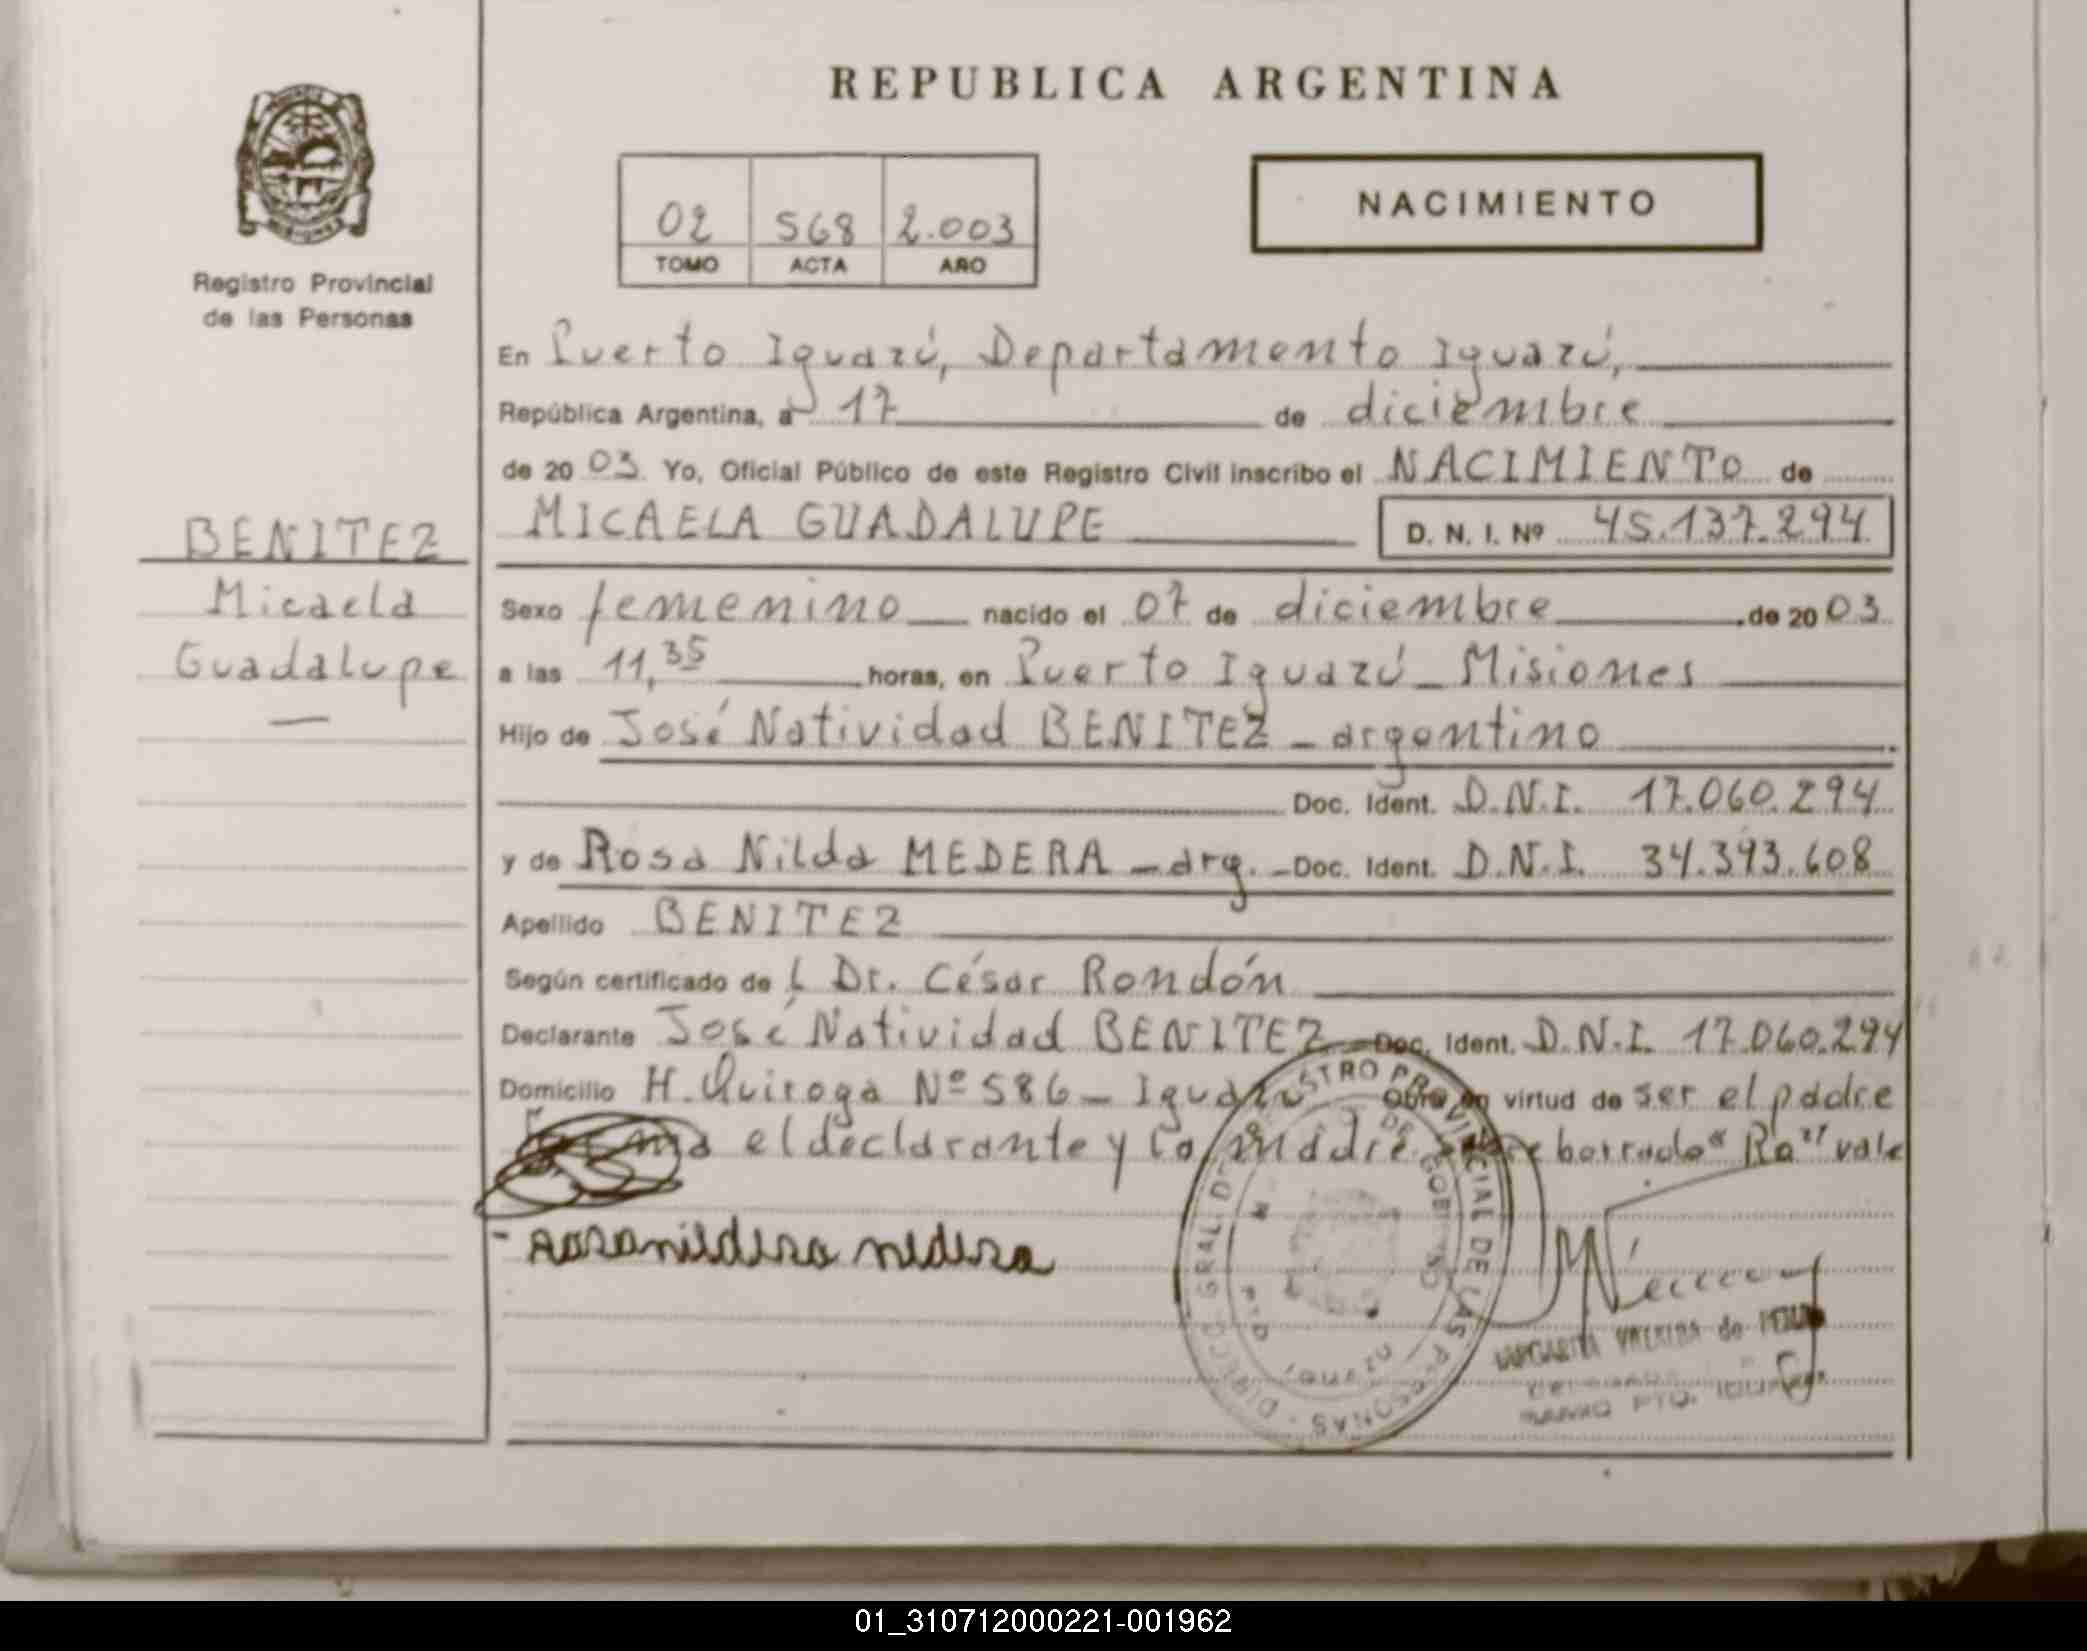 REPUBLICA ARGENTINA
NACIMIENTO
02 568 2.003
TOMO ACTA AÑO
Registro Provincial
de las Personas
En Puerto Iguazú, Departamento Iguazú,
República Argentina, a 17 de diciembre
de 2003 Yo, Oficial Público de este Registro Civil inscribo el NACIMIENTO de
MICAELA GUADALUPE D. N. I. Nº 45.137.294
BENITEZ
Micaela
Guadalupe
Sexo femenino nacido el 07 de diciembre de 2003
a las 11,35 horas, en Puerto Iguazú - Misiones
Hijo de José Natividad BENITEZ - argentino
Doc. Ident. D.N.I. 17.060.294
y de Rosa Nilda MEDERA - arg. - Doc. Ident. D.N.I. 34.393.608
Apellido BENITEZ
Según certificado de l Dr. César Rondón
Declarante José Natividad BENITEZ Doc. Ident. D.N.I. 17.060.294
Domicilio H. Quiroga Nº 586 - Iguazú Obra en virtud de ser el padre
el declarante y la madre borrado "Ra" vale
DIREC. GRAL. REGISTRO PROVINCIAL DE LAS PERSONAS
MARGARITA de
PTO.
01_310712000221-001962